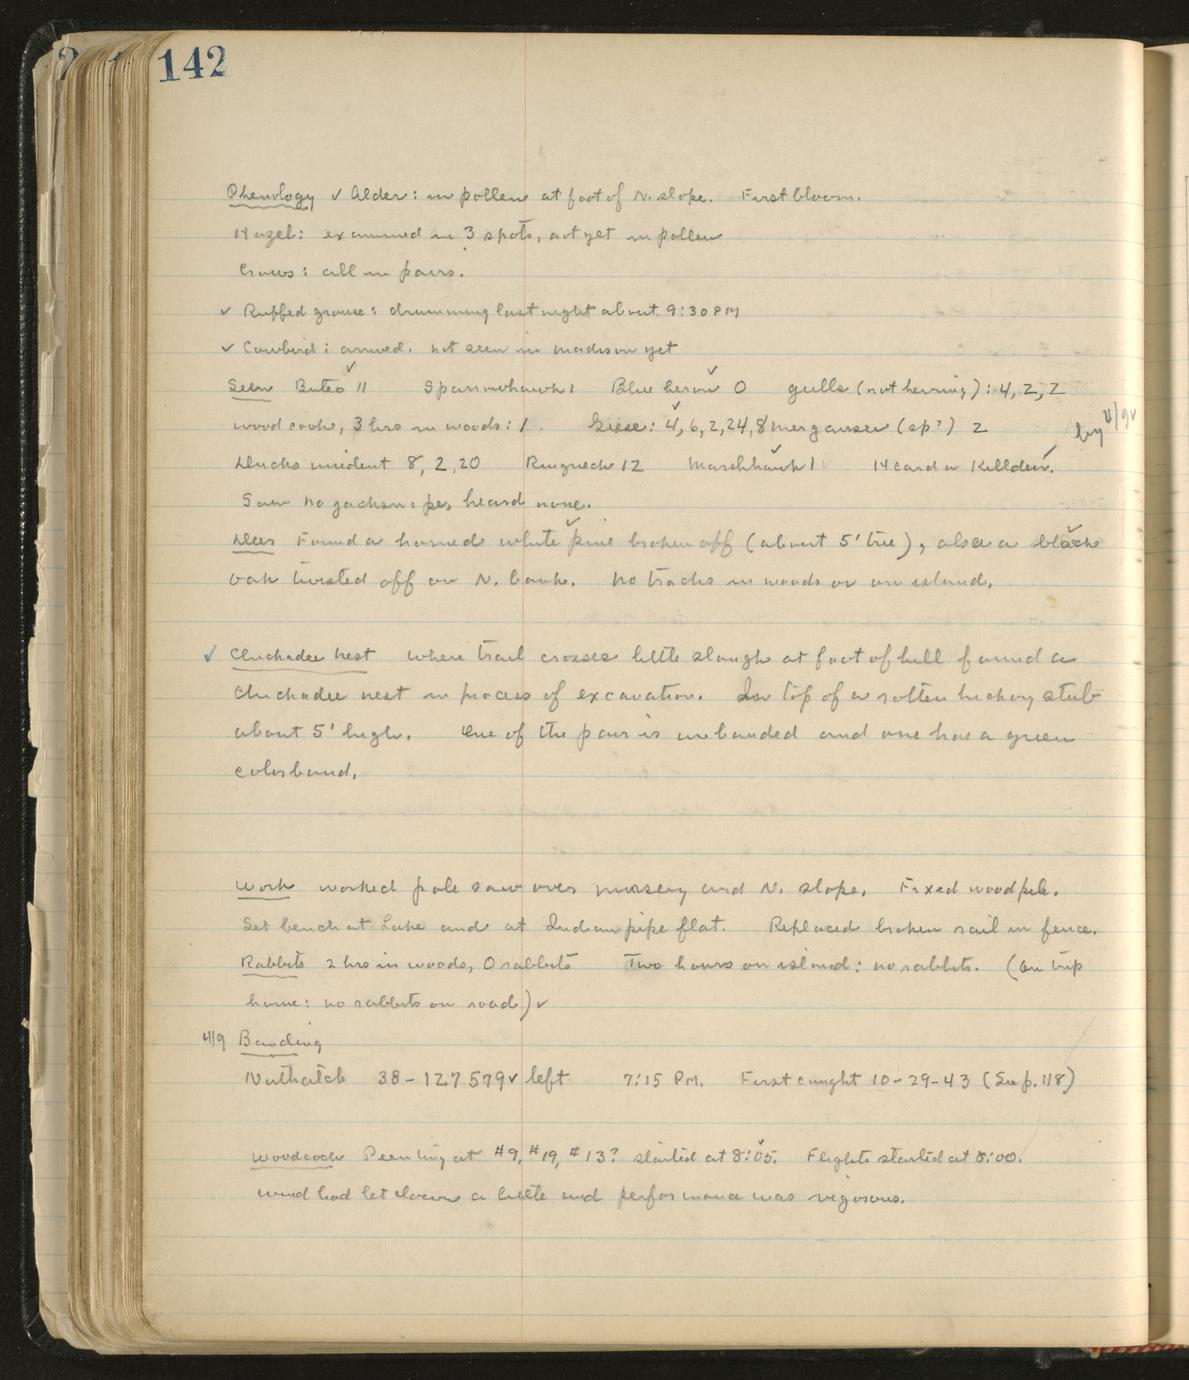 142
Phenology ✓ Alder: in pollen at foot of N. slope. First bloom.
Hazel: examined in 3 spots, not yet in pollen
Crows: all in pairs.
✓ Ruffed grouse: drumming last night about 9:30 PM
✓ Cowbird: arrived. not seen in Madison yet
Seen Buteo ✓ 11 Sparrowhawk 1 Blue heron ✓ 0 gulls (not herring): 4, 2, 2
woodcock, 3 hrs in woods: 1. Geese: ✓ 4, 6, 2, 24, 8 merganser (sp?) 2 by 4/9 ✓
Ducks unident 8, 2, 20 Ringneck 12 Marshhawk ✓ 1 Heard a Killdeer ✓.
Saw no jacksnipe, heard none.
Deer Found a horned white ✓ pine broken off (about 5' tree), also a black ✓
oak twisted off on N. bank. No tracks in woods or on island.
✓ Chickadee Nest Where trail crosses little slough at foot of hill found a
chickadee nest in process of excavation. In top of a rotten hickory stub
about 5' high. One of the pair is unbanded and one has a green
colorband.
Work Worked pole saw over nursery and N. slope. Fixed woodpile.
Set bench at Lake and at Indian pipe flat. Replaced broken rail in fence.
Rabbits 2 hrs in woods, 0 rabbits Two hours on island: no rabbits. (On trip
home: no rabbits on road) ✓
4/9 Banding
Nuthatch 38-127579 ✓ left 7:15 PM. First caught 10-29-43 (See p. 118)
Woodcock Peenting at #9, #19, #13? started at 8:05 ✓. Flights started at 8:00.
Wind had let down a little and performance was vigorous.